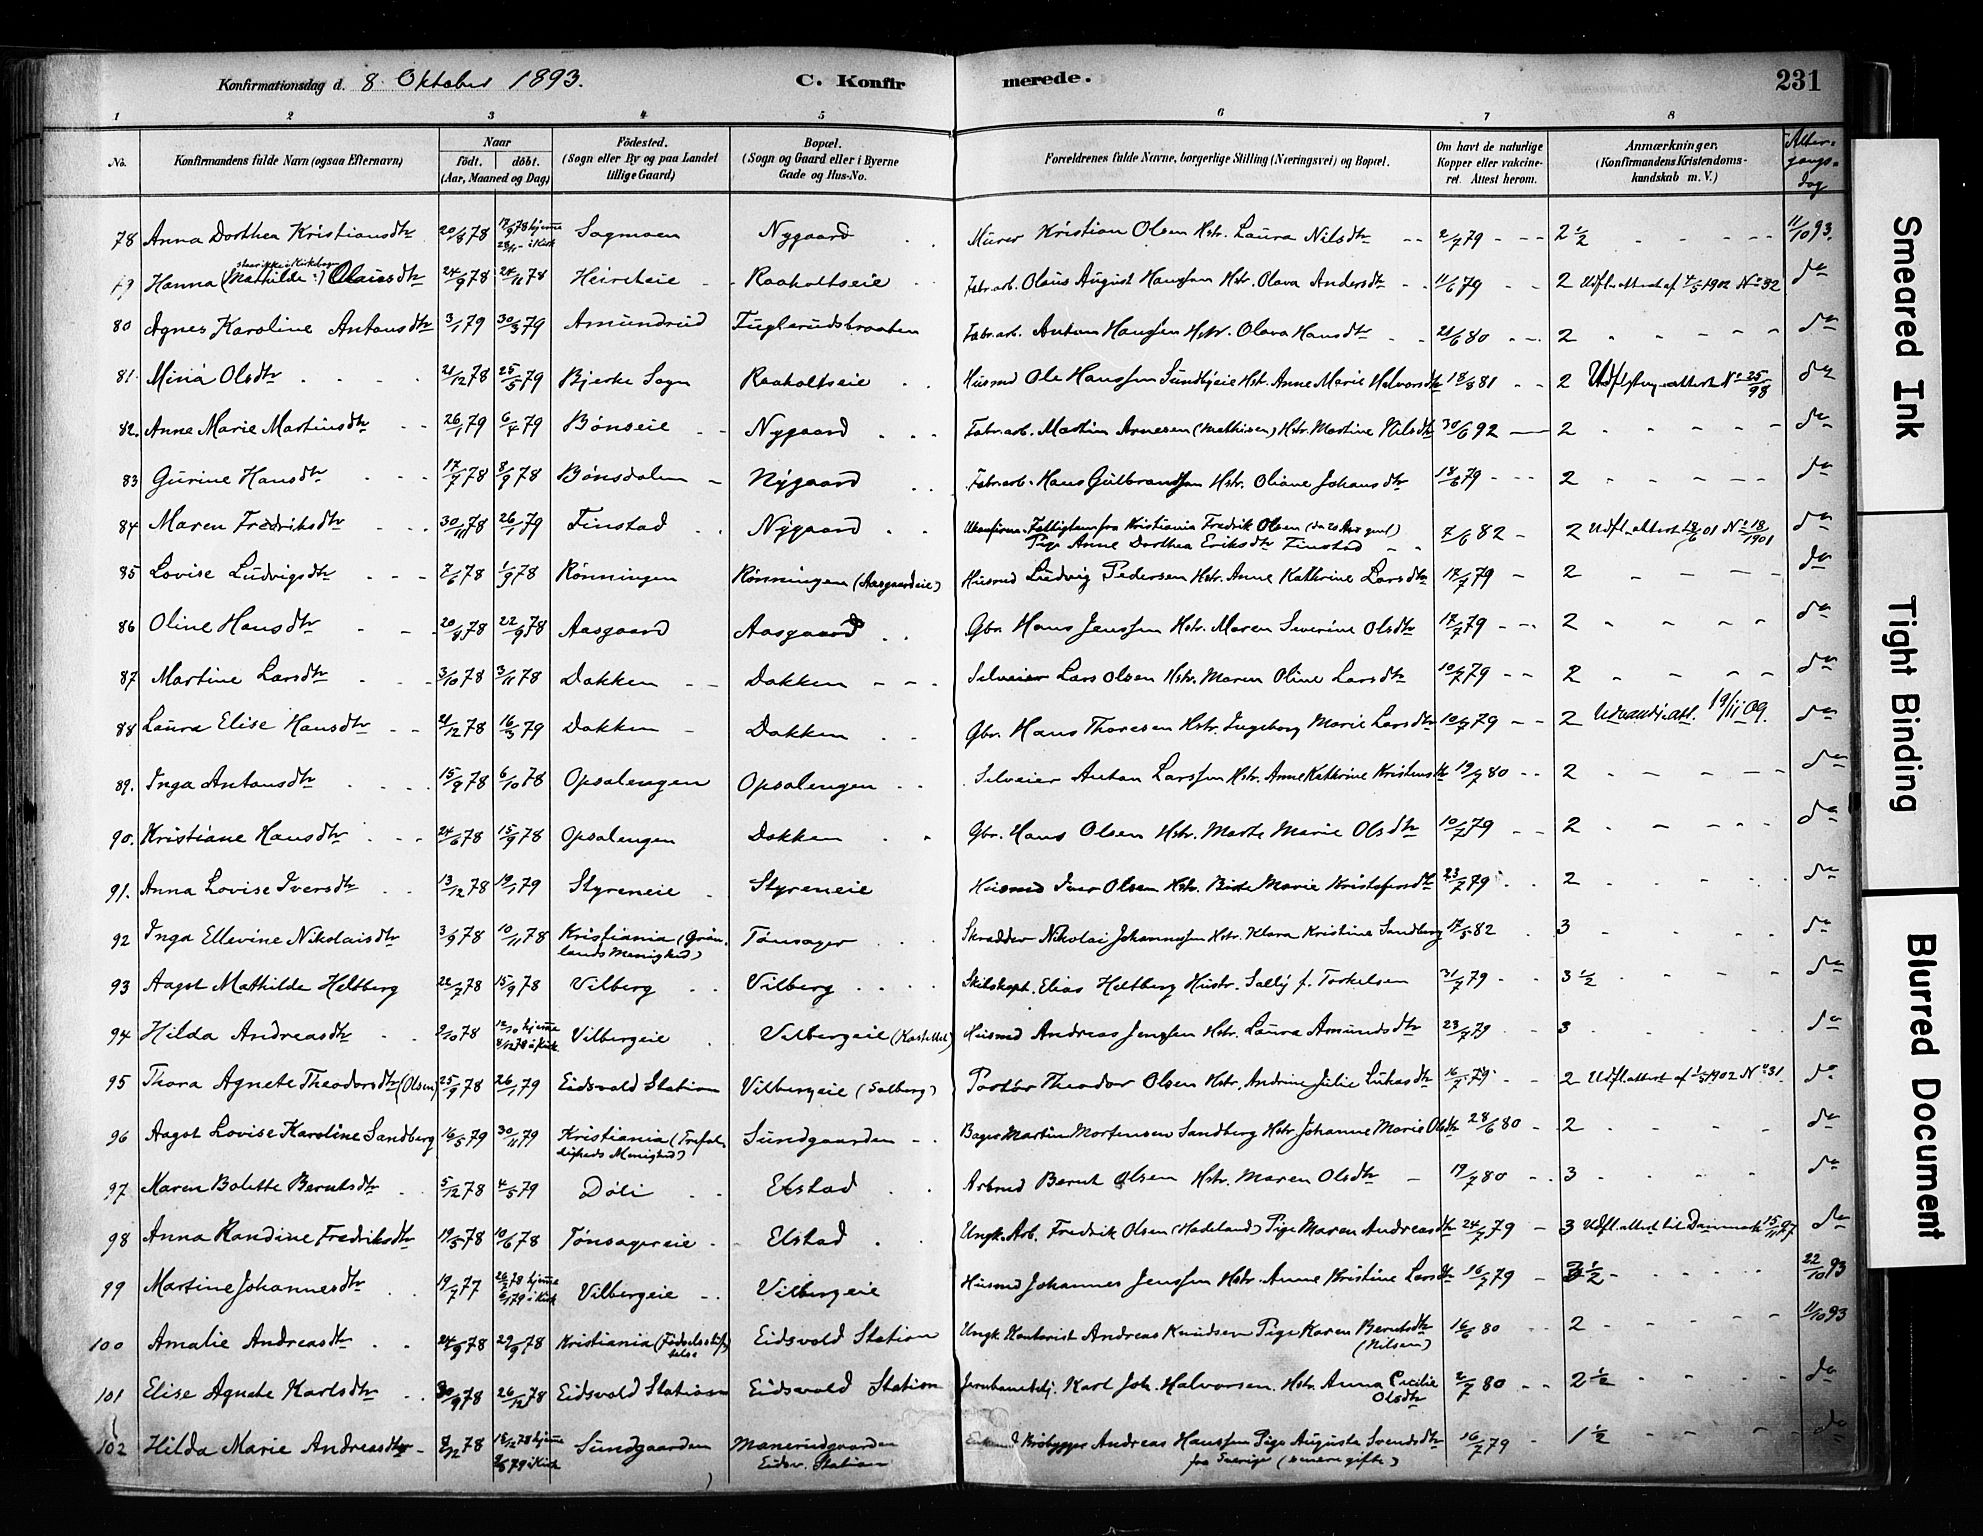 Konfirmationsdag d. 8. Oktober 1893. C. Konfirmerede. 231
1 2 3 4 5 6 7 8
No. Konfirmandens fulde Navn (ogsaa Efternavn) Naar født. døbt. (Aar, Maaned og Dag) Födested. (Sogn eller By og paa Landet tillige Gaard) Bopæl. (Sogn og Gaard eller i Byerne Gade og Hus-No. Forældrenes fulde Navne, borgerlige Stilling (Næringsvei) og Bopæl. Om havt de naturlige Kopper eller vakcineret. Attest herom. Anmærkninger. (Konfirmandens Kristendomskundskab m. V.) Altergangsdag
78 Anna Dorthea Kristiansdtr 20/8 78 17/9 78 hjemme i Kirk Sagmoen Nygaard Murer Kristian Olsen Hstr. Laura Nilsdtr 2/7 79 2 1/2 11/10 93.
79 Hanna (Mathilde) Olausdtr 24/9 78 24/11 78 Raaholtseie Fabr.arb. Olaus August Hanssen Hstr. Olava Andersdtr 11/6 79 2 Udfl.attest af 4/5 1902 No 32 do
80 Agnes Karoline Antonsdtr 3/1 79 30/3 79 Amundrud Fuglerudsbraaten Fabr.arb. Anton Hanssen Hstr. Olava Hansdtr 21/6 80 2 do
81. Mina Olsdtr 21/12 78 25/5 79 Bjerke Sogn Raaholtseie Husmd Ole Hanssen Sundbyeie Hstr. Anne Marie Halvorsdtr 18/8 81 2 No 25/98 do
82. Anne Marie Martinsdtr 26/1 79 6/4 79 Bønseie Nygaard Fabr.arb. Martin Arnesen (Mathisen) Hstr. Martine Nilsdtr 30/6 92 2 do
83 Gurine Hansdtr 17/7 78 8/9 78 Bønsdalen Nygaard Fabr.arb. Hans Gulbrandsen Hstr. Oliane Johansdtr 18/6 79 2 do
84 Maren Fredriksdtr 30/11 78 26/1 79 Finstad Nygaard Ukonfirm. Fattiglem fra Kristiania Fredrik Olsen (da 20 Aar gml)
Pige Anne Dorthea Eriksdtr Finstad 7/6 82 2 Udfl.attest 18/6 01 No 18/1901 do
85 Lovise Ludvigsdtr 2/6 78 1/9 78 Rønningen Rønningen (Aasgaardeie) Husmd Ludvig Pedersen Hstr. Anne Kathrine Larsdtr 17/7 79 2 do
86 Oline Hansdtr 20/8 78 22/9 78 Aasgaard Aasgaard Gbr. Hans Jenssen Hstr. Maren Severine Olsdtr 17/7 79 2 do
87 Martine Larsdtr 3/10 78 3/11 78 Dokken Dokken Selveier Lars Olsen Hstr. Maren Oline Larsdtr 10/7 79 2 do
88 Laura Elise Hansdtr 21/12 78 16/3 79 Dokken Dokken Gbr. Hans Thoresen Hstr. Ingeborg Marie Larsdtr 10/7 79 2 Udvandr.att. 19/11 09. do
89. Inga Antonsdtr 15/9 78 6/10 78 Opsalengen Opsalengen Selveier Anton Larssen Hstr. Anne Kathrine 19/7 80 2 do
90. Kristiane Hansdtr 24/6 78 15/9 78 Opsalengen Dokken Gbr. Hans Olsen Hstr. Marte Marie Olsdtr 10/7 79 2 do
91. Anna Lovise Iversdtr 13/12 78 19/1 79 Styreneie Styreneie Husmd Iver Olsen Hstr. Birte Marie Kristofersdtr 23/7 79 2 do
92 Inga Ellevine Nikolaisdtr 3/9 78 10/11 78 Kristiania (Grønlands Menighed) Tønsager Skrædder Nikolai Johannessen Hstr. Klara Kristine Sandberg 17/5 82 3 do
93 Aagot Mathilde Heltberg 26/7 78 15/9 78 Vilberg Vilberg Elias Heltberg Hustr. Sally f. Torkelsen 31/7 79 3 1/2 do
94 Hilda Andreasdtr 9/10 78 12/10 hjemme 8/12 78 i Kirk. Vilbergeie Vilbergeie (Kastellet) Husmd Andreas Jenssen Hstr. Laura Amundsdtr 23/7 79 3 do
95 Thora Agnete Theodorsdtr (Olsen) 25/9 78 26/1 79 Eidsvold Station Vilbergeie (Solberg) Portør Theodor Olsen Hstr. Andrine Julie Lukasdtr 16/7 79 2 Udfl.attest af 1/5 1902 No 31. do
96 Aagot Lovise Karoline Sandberg 16/5 79 30/11 79 Kristiania (Trefoldigheds Menighed) Sundgaarden Bager Martin Mortensen Sandberg Hstr. Johanne Marie Olsdtr 28/6 80 2 do
97 Maren Bolette Berntsdtr 5/12 78 4/5 79 Døli Elstad Arbmd Bernt Olsen Hstr. Maren Olsdtr 19/7 80 3 do
98 Anna Randine Fredriksdtr 19/5 78 10/6 78 Tønsagereie Elstad Ungk. Arb. Fredrik Olsen (Hadeland) Pige Maren Andreasdtr 24/7 79 3 Udfl.attest til Danmark 15/11 97 do
99 Martine Johannesdtr 19/7 77 hjemme i Kirk Vilbergeie Vilbergeie Husmd Johannes Jenssen Hstr. Anne Kristine Larsdtr 16/7 79 3 1/2 22/10 93
100 Amalie Andreasdtr 24/9 78 29/9 78 Kristiania (Fødselsstiftelse) Eidsvold Station Ungk. Kontorist Andreas Knudsen Pige Karen Berntsdtr (Nilsen) 16/6 80 2 11/10 93
101 Elise Agnete Karlsdtr 30/9 78 26/12 78 Eidsvold Station Eidsvold Station Karl Joh. Halvorsen Hstr. Anna Cecilie Olsdtr 2/7 80 2 1/2 do
102 Hilda Marie Andreasdtr 8/12 78 18/12 78 hjemme i Kirk Sundgaarden Manerudgaarden Eidsv. Station Brobygger Andreas Hanssen Pige Augusta Svendsdtr fra Sverige (senere gifte) 16/7 79 1 1/2 do
Smeared Ink
Tight Binding
Blurred Document